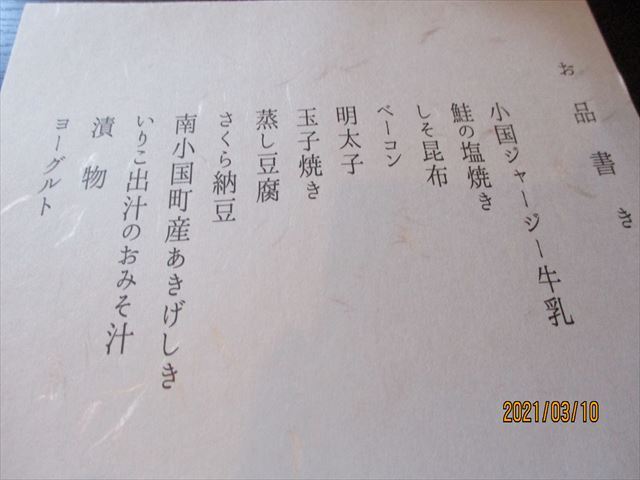 お品書き
小国ジャージー牛乳
鮭の塩焼き
しそ昆布
ベーコン
明太子
玉子焼き
蒸し豆腐
さくら納豆
南小国町産あきげしき
いりこ出汁のおみそ汁
漬物
ヨーグルト
2021/03/10